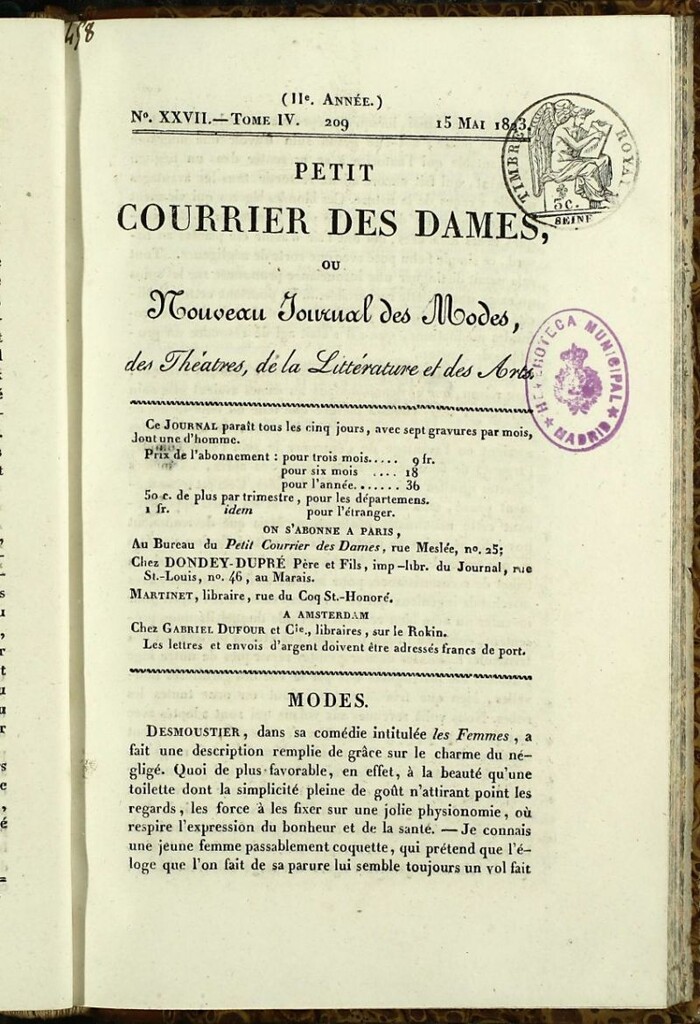 458
(IIe. ANNÉE.)
No. XXVII.—TOME IV. 209 15 MAI 1823.
TIMBRE ROYAL
5c.
SEINE
PETIT
COURRIER DES DAMES,
OU
Nouveau Journal des Modes,
des Théatres, de la Littérature et des Arts.
HEMEROTECA MUNICIPAL
MADRID
Ce JOURNAL paraît tous les cinq jours, avec sept gravures par mois,
dont une d'homme.
Prix de l'abonnement : pour trois mois..... 9 fr.
pour six mois .... 18
pour l'année....... 36
50 c. de plus par trimestre, pour les départemens.
1 fr. idem pour l'étranger.
ON S'ABONNE A PARIS,
Au Bureau du Petit Courrier des Dames, rue Meslée, no. 25;
Chez DONDEY-DUPRÉ Père et Fils, imp-libr. du Journal, rue
St.-Louis, no. 46, au Marais.
MARTINET, libraire, rue du Coq St.-Honoré.
A AMSTERDAM
Chez GABRIEL DUFOUR et Cie., libraires, sur le Rokin.
Les lettres et envois d'argent doivent être adressés francs de port.
MODES.
DESMOUSTIER, dans sa comédie intitulée les Femmes, a
fait une description remplie de grâce sur le charme du né-
gligé. Quoi de plus favorable, en effet, à la beauté qu'une
toilette dont la simplicité pleine de goût n'attirant point les
regards, les force à les fixer sur une jolie physionomie, où
respire l'expression du bonheur et de la santé. — Je connais
une jeune femme passablement coquette, qui prétend que l'é-
loge que l'on fait de sa parure lui semble toujours un vol fait